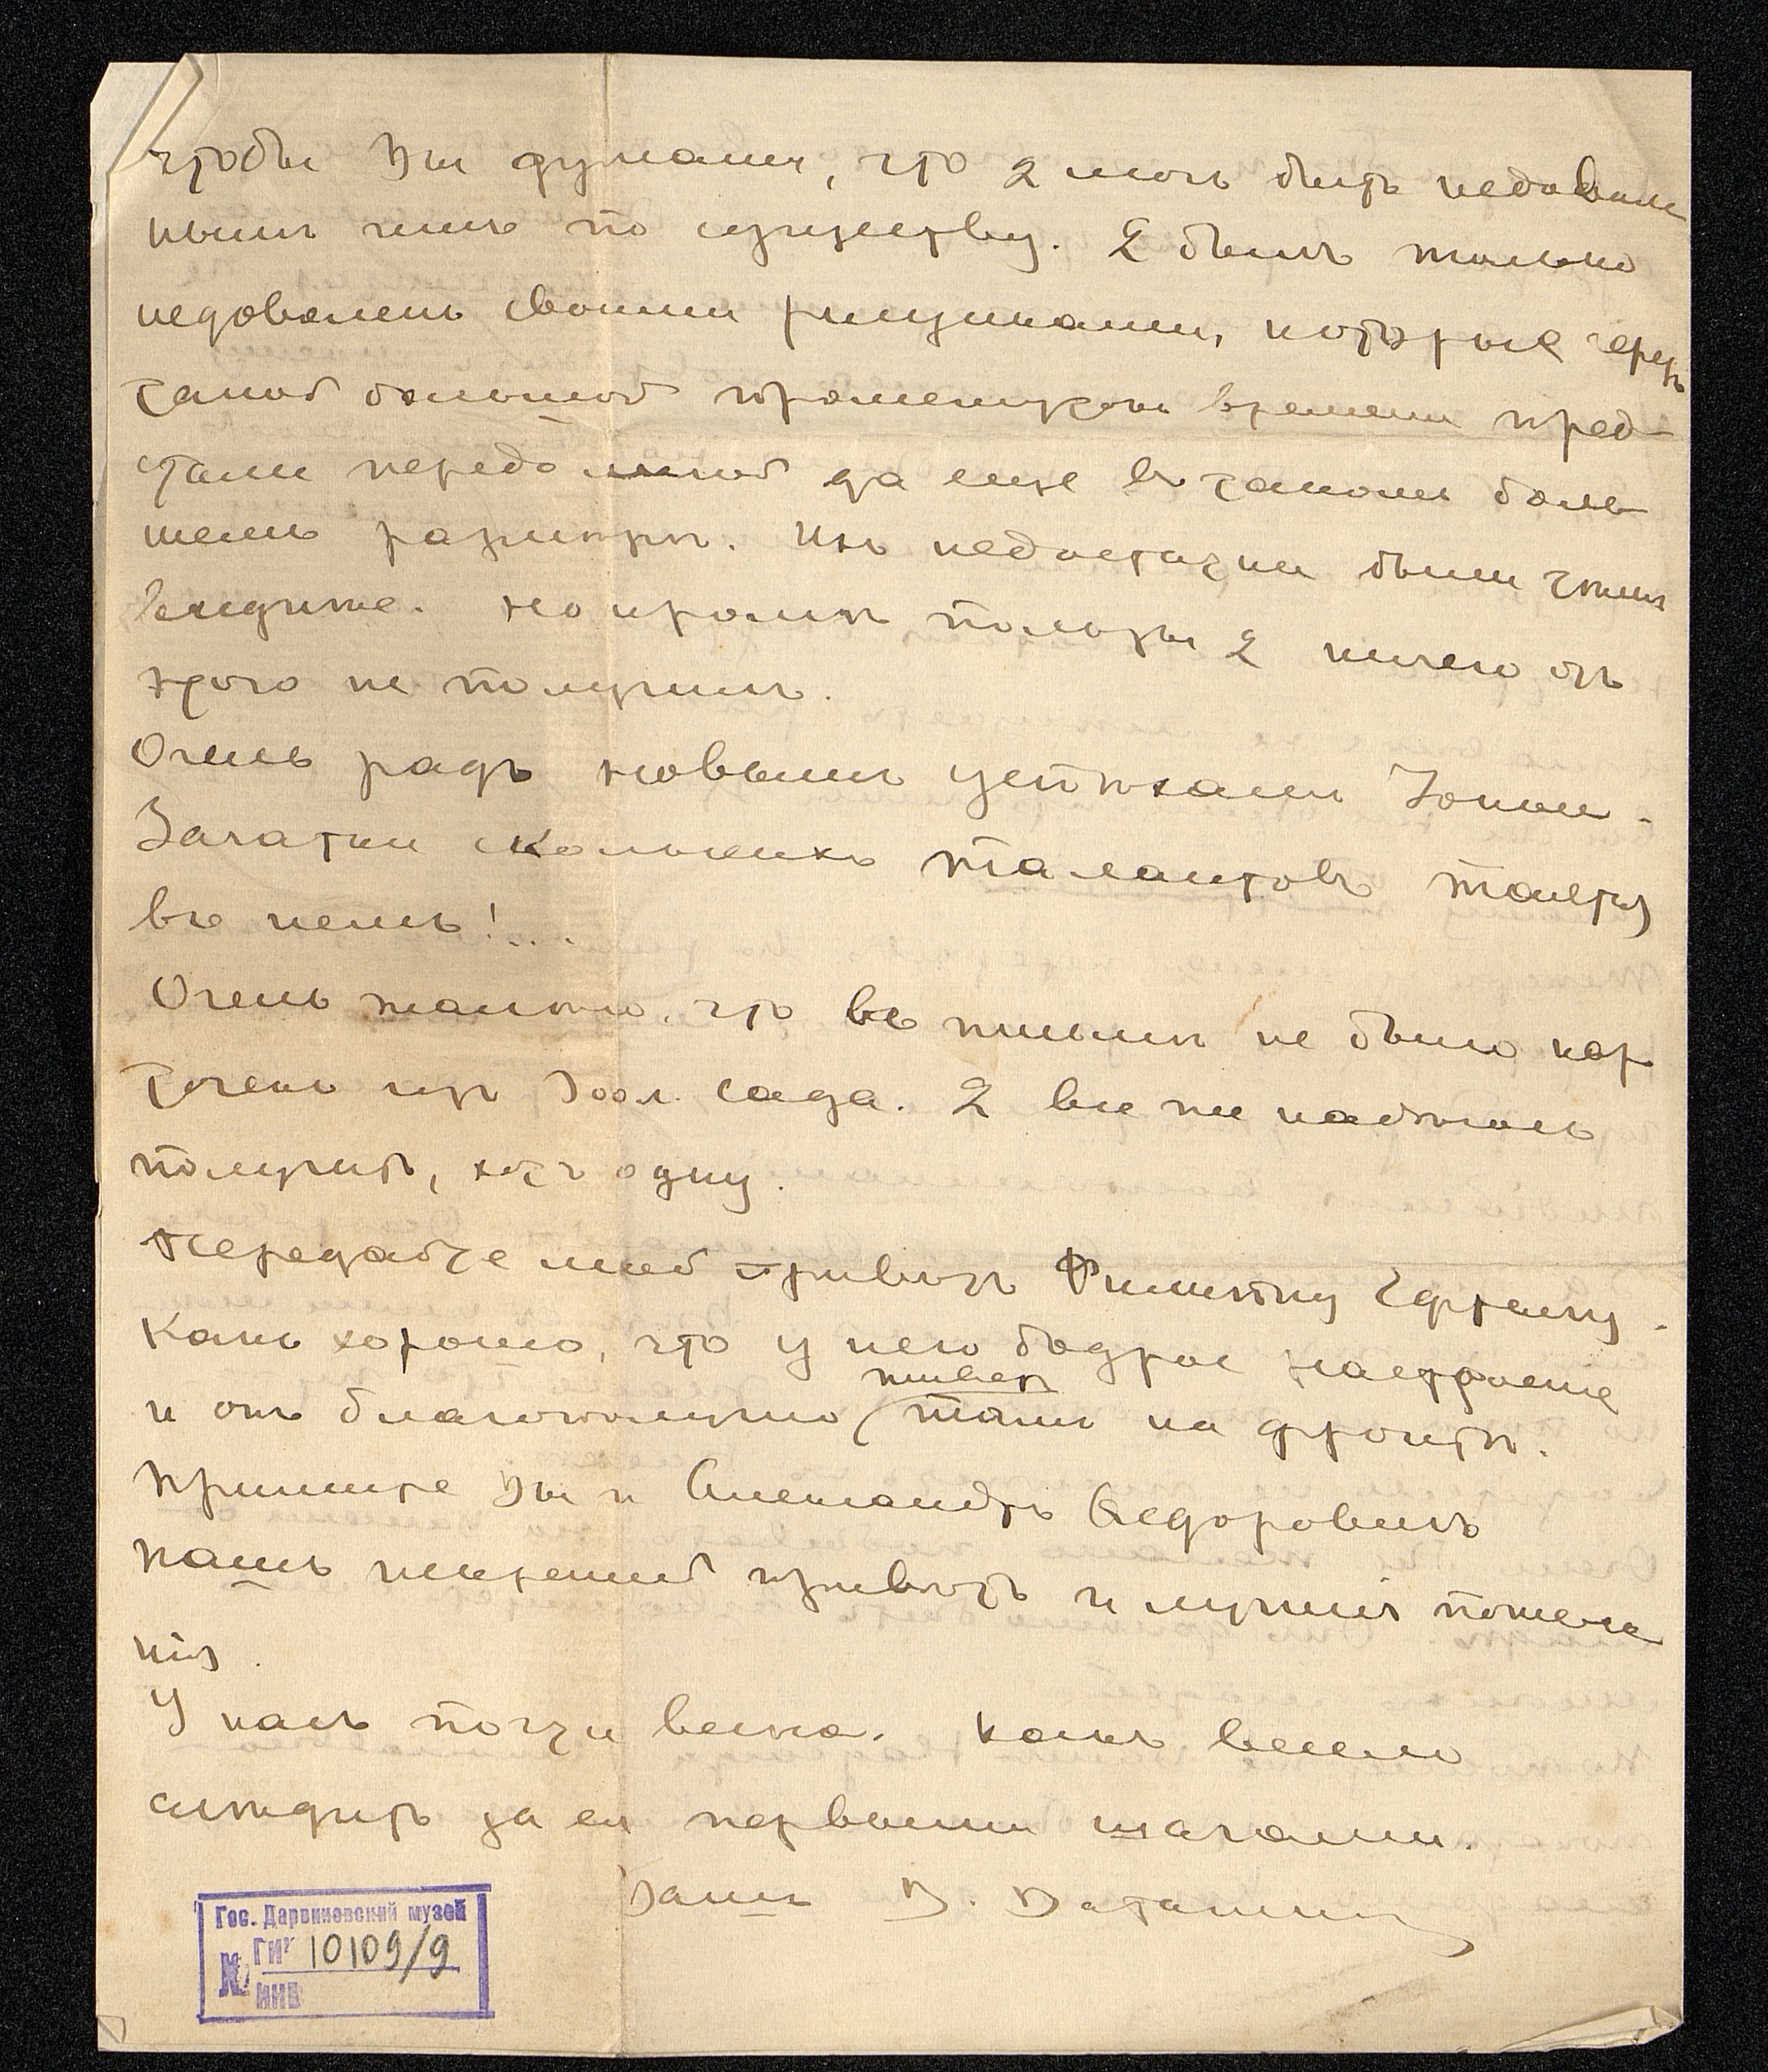 чтобы Вы думали, что я могъ быть недоволь
нымъ ими по существу. Я былъ только
недоволенъ своими рисунками, которые черезъ
такой большой промежутокъ времени пред-
стали передо мной да еще въ такомъ боль
шемъ размѣрѣ. Их недостатки были
виднѣе. Но кромѣ пользы я ничего отъ
этого не получилъ.
Очень радъ новымъ успѣхамъ Іони.
Зачатки сколькихъ талантовъ таятся
въ немъ!...
Очень жалко, что въ письмѣ не было кар
точекъ изъ Зоол. сада. Я все же надѣюсь
получить, хоть одну.
Передайте мой привѣтъ Филиппу Ефтеичу.
Какъ хорошо, что у него бодрое настроеніе
и онъ благополучно (тамъ на фронтѣ.
живетъ
Примите Вы и Александръ Ѳедоровичъ
нашъ искренній привѣтъ и лучшія пожела
нія.
У насъ почти весна. Какъ весело
слѣдить за ея первыми шагами.
Вашъ В. Ватагинъ
Гос. Дарвиновский музей
№ ГИК 10109/9
ИНВ